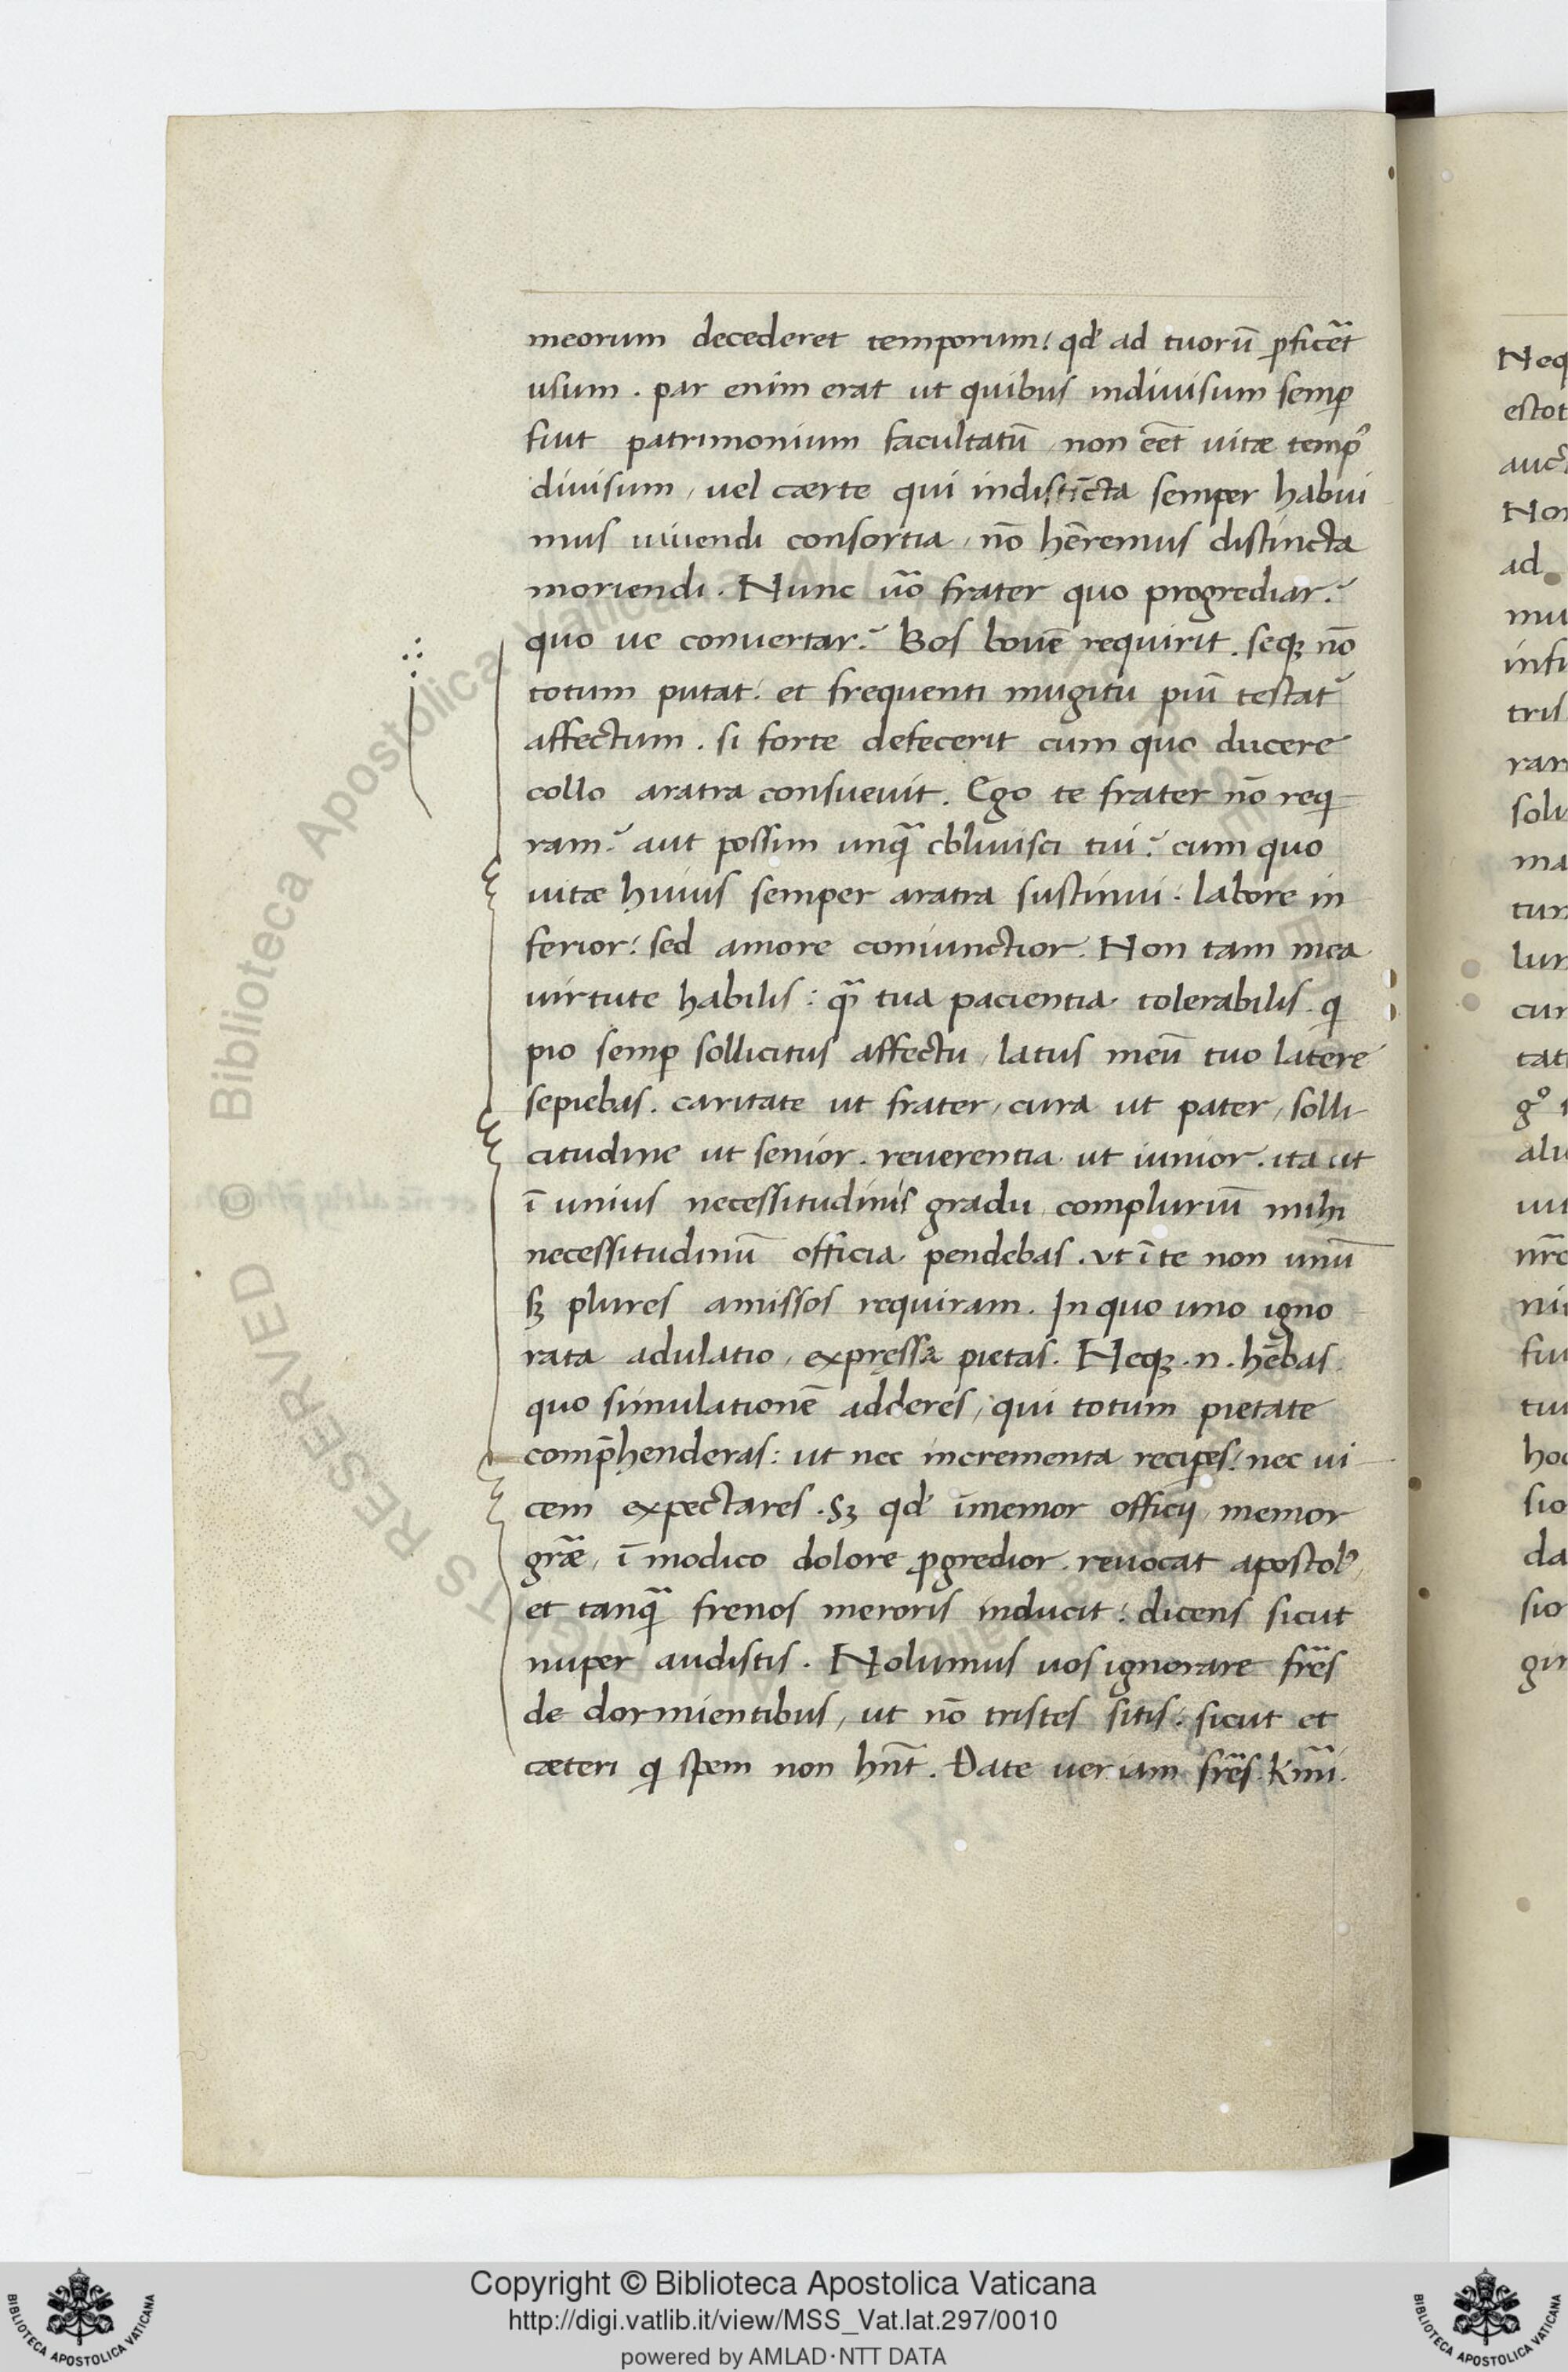 meorum decederet temporum! qđ ad tuorū ꝓficēt
usum . par enim erat ut quibus indiuisum semꝑ
fuit patrimonium facultatū, non eēt uitæ tempꝰ
diuisum, uel cærte qui indistīcta semper habui
mus uiuendi consortia, nō hēremus distincta
moriendi. Nunc u̅o frater quo progrediar?
quo ue conuertar? Bos bouē requirit. seqꝫ nō
totum putat: et frequenti mugitu piū testat᷑
affectum . si forte defecerit cum quo ducere
collo aratra consueuit. Ego te frater nō reqͥ
ram? aut possim unq̄ obliuisci tui? cum quo
uitæ huius semper aratra sustinui: labore in
ferior! sed amore coniunctior. Non tam mea
uirtute habilis: q̄ tua pacientia tolerabilis. qͥ
pio semꝑ sollicitus affectu, latus meū tuo latere
sepiebas. caritate ut frater, cura ut pater, solli
citudine ut senior. reuerentia ut iunior. ita ut
ī unius necessitudinis gradu compluriū mihi
necessitudinū officia pendebas. ut ī te non unū
sꝫ plures amissos requiram. In quo uno igno
rata adulatio, expressa pietas. Neqꝫ .n. hēbas
quo simulationē adderes, qui totum pietate
comp̄henderas: ut nec incrementa reciꝑes! nec ui
cem expectares. Sꝫ qđ īmemor officij memor
grāe, ī modico dolore ꝓgredior. reuocat apostolꝰ,
et tanq̄ frenos meroris inducit: dicens sicut
nuper audistis. Nolumus uos ignorare frēs
de dormientibus, ut nō tristes sitis: sicut et
cæteri qͥ spem non hn̄t. Date ueniam frēs. Kmī.
Copyright © Biblioteca Apostolica Vaticana
http://digi.vatlib.it/view/MSS_Vat.lat.297/0010
powered by AMLAD·NTT DATA
BIBLIOTECA APOSTOLICA VATICANA
BIBLIOTECA APOSTOLICA VATICANA